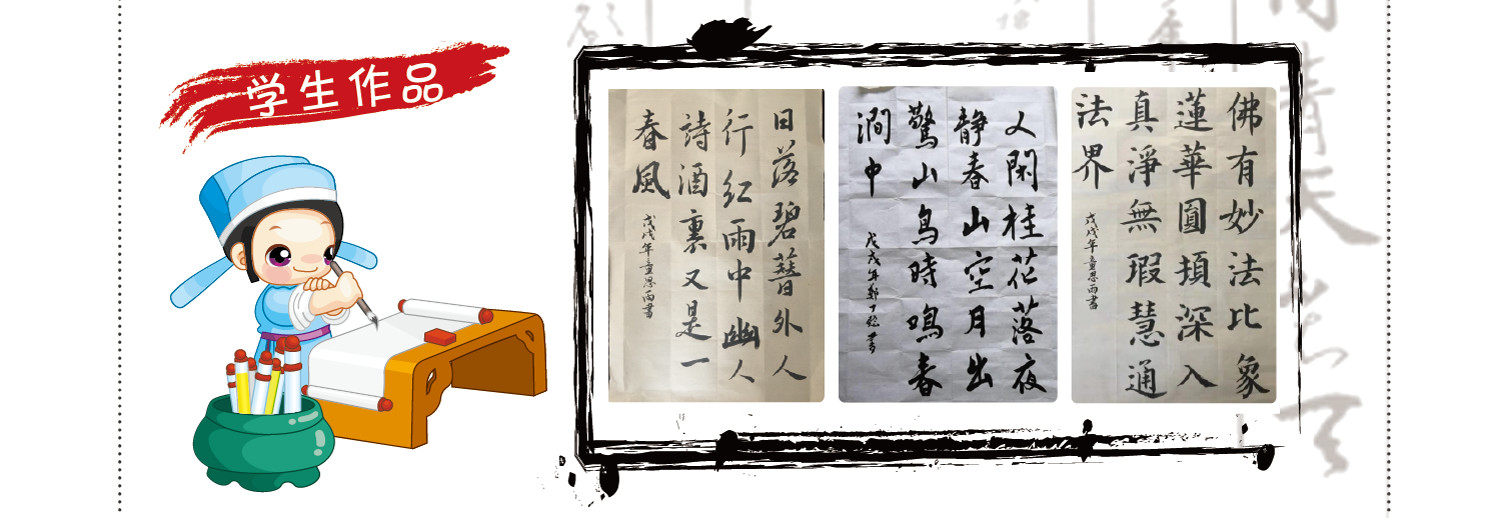 学生作品
日落碧簪外人
行紅雨中幽人
詩酒裏又是一
春風
戊戌年童思雨書
人閑桂花落夜
静春山空月出
驚山鳥時鳴春
澗中
戊戌年鄭丁書
佛有妙法比象
蓮華圓頓深入
真淨無瑕慧通
法界
戊戌年童思雨書